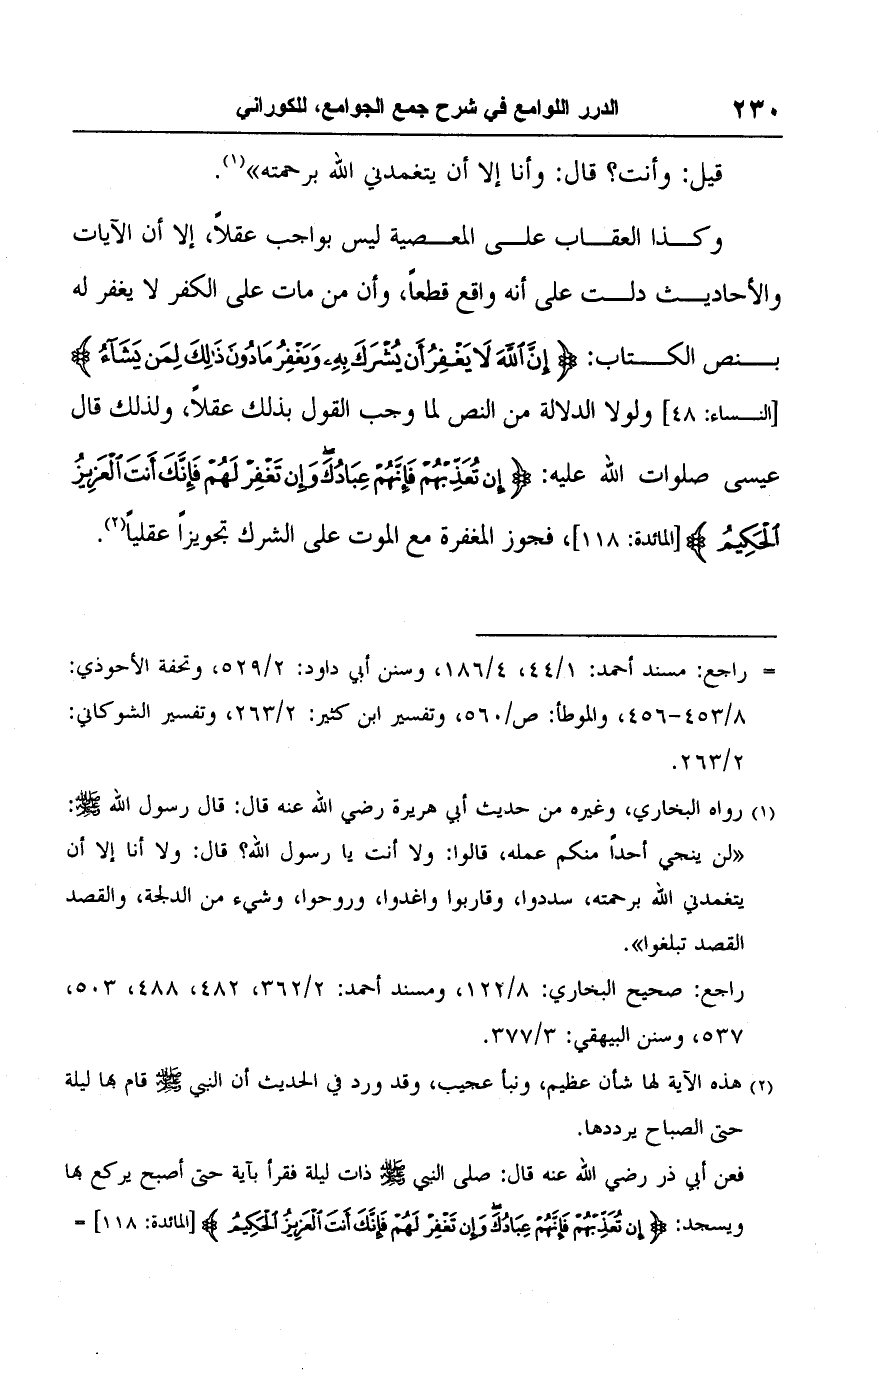 ٢٣٠ الدرر اللوامع في شرح جمع الجوامع، للكوراني
قيل: وأنت؟ قال: وأنا إلا أن يتغمدني الله برحمته»(١).
وكـــذا العقـــاب علـــى المعـــصية ليس بواجب عقلاً، إلا أن الآيات
والأحاديـــث دلـــت على أنه واقع قطعاً، وأن من مات على الكفر لا يغفر له
بـــنص الكـــتاب: ﴿ إِنَّ ٱللَّهَ لَا يَغْفِرُ أَن يُشْرَكَ بِهِۦ وَيَغْفِرُ مَا دُونَ ذَٰلِكَ لِمَن يَشَآءُ ﴾
[النـــساء: ٤٨] ولولا الدلالة من النص لما وجب القول بذلك عقلاً، ولذلك قال
عيسى صلوات الله عليه: ﴿ إِن تُعَذِّبْهُمْ فَإِنَّهُمْ عِبَادُكَ ۖ وَإِن تَغْفِرْ لَهُمْ فَإِنَّكَ أَنتَ ٱلْعَزِيزُ
ٱلْحَكِيمُ ﴾ [المائدة: ١١٨]، فجوز المغفرة مع الموت على الشرك تجويزاً عقلياً(٢).
= راجع: مسند أحمد: ٤٤/١، ١٨٦/٤، وسنن أبي داود: ٥٢٩/٢، وتحفة الأحوذي:
٤٥٣/٨-٤٥٦، والموطأ: ص/٥٦٠، وتفسير ابن كثير: ٢٦٣/٢، وتفسير الشوكاني:
٢٦٣/٢.
(١) رواه البخاري، وغيره من حديث أبي هريرة رضي الله عنه قال: قال رسول الله ﷺ:
«لن ينجي أحداً منكم عمله، قالوا: ولا أنت يا رسول الله؟ قال: ولا أنا إلا أن
يتغمدني الله برحمته، سددوا، وقاربوا واغدوا، وروحوا، وشيء من الدلجة، والقصد
القصد تبلغوا».
راجع: صحيح البخاري: ١٢٢/٨، ومسند أحمد: ٣٦٢/٢، ٤٨٢، ٤٨٨، ٥٠٣،
٥٣٧، وسنن البيهقي: ٣٧٧/٣.
(٢) هذه الآية لها شأن عظيم، ونبأ عجيب، وقد ورد في الحديث أن النبي ﷺ قام بها ليلة
حتى الصباح يرددها.
فعن أبي ذر رضي الله عنه قال: صلى النبي ﷺ ذات ليلة فقرأ بآية حتى أصبح يركع بها
ويسجد: ﴿ إِن تُعَذِّبْهُمْ فَإِنَّهُمْ عِبَادُكَ ۖ وَإِن تَغْفِرْ لَهُمْ فَإِنَّكَ أَنتَ ٱلْعَزِيزُ ٱلْحَكِيمُ ﴾ [المائدة: ١١٨] =